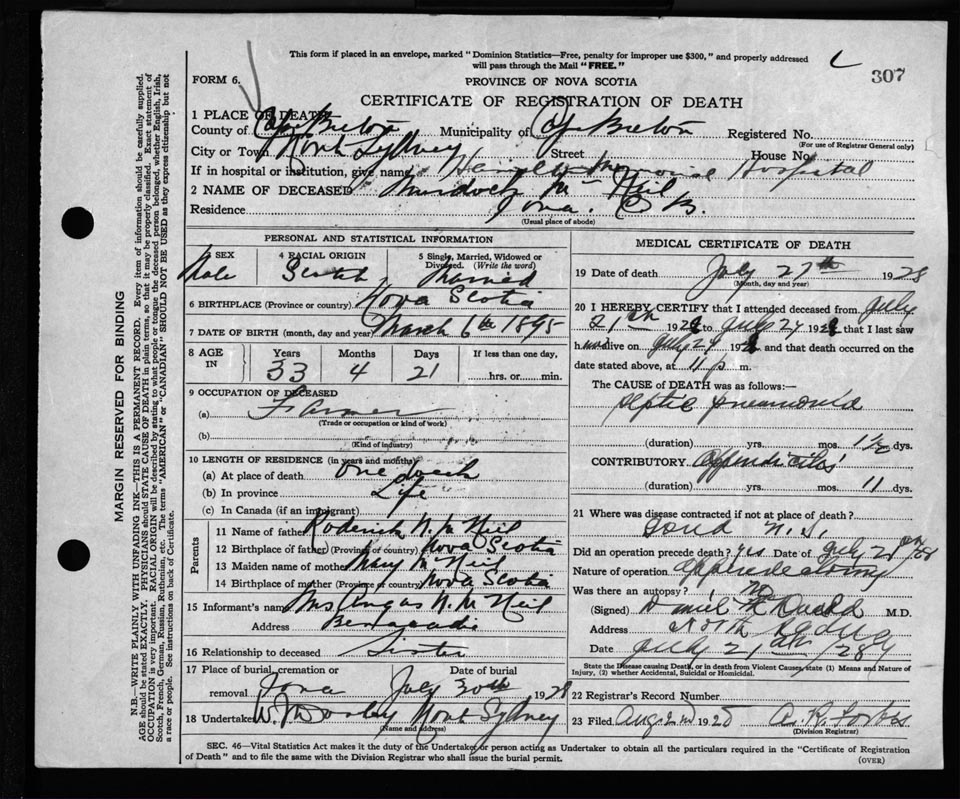 This form if placed in an envelope, marked "Dominion Statistics—Free, penalty for improper use $300," and properly addressed
will pass through the Mail "FREE."
307
FORM 6.
PROVINCE OF NOVA SCOTIA
CERTIFICATE OF REGISTRATION OF DEATH
1 PLACE OF DEATH
County of Cape Breton Municipality of Cape Breton Registered No.
(For use of Registrar General only)
City or Town North Sydney Street House No.
If in hospital or institution, give name Hamilton Memorial Hospital
2 NAME OF DECEASED Murdoch Mc Neil
Residence Iona. C B.
(Usual place of abode)
PERSONAL AND STATISTICAL INFORMATION
3 SEX 4 RACIAL ORIGIN 5 Single, Married, Widowed or Divorced. (Write the word)
Male Scotch Married
6 BIRTHPLACE (Province or country) Nova Scotia
7 DATE OF BIRTH (month, day and year) March 6th 1895
8 AGE IN Years Months Days If less than one day,
33 4 21 hrs. or min.
9 OCCUPATION OF DECEASED
(a) Farmer
(Trade or occupation or kind of work)
(b)
(Kind of industry)
10 LENGTH OF RESIDENCE (in years and months)
(a) At place of death One week
(b) In province Life
(c) In Canada (if an immigrant)
Parents
11 Name of father Roderick N. McNeil
12 Birthplace of father (Province of country) Nova Scotia
13 Maiden name of mother Mary McNeil
14 Birthplace of mother (Province or country) Nova Scotia
15 Informant's name Mrs Angus N. McNeil
Address Benacadie
16 Relationship to deceased Sister
17 Place of burial, cremation or Date of burial
removal Iona July 30th 1928
18 Undertaker North Sydney
(Name and address)
MEDICAL CERTIFICATE OF DEATH
19 Date of death July 27th 1928
(Month, day and year)
20 I HEREBY CERTIFY that I attended deceased from July
21st 1928 to July 27 1928 that I last saw
h alive on July 27 1928 and that death occurred on the
date stated above, at 11 p m.
The CAUSE of DEATH was as follows:—
Septic pneumonia
(duration) yrs. mos. 1½ dys.
CONTRIBUTORY Appendicitis
(duration) yrs. mos. 11 dys.
21 Where was disease contracted if not at place of death?
Iona N.S.
Did an operation precede death? yes Date of July 21
Nature of operation Appendectomy
Was there an autopsy? no
(Signed) Daniel McDonald M.D.
Address North Sydney
Date July
State the Disease causing Death, or in death from Violent Causes, state (1) Means and Nature of
Injury, (2) whether Accidental, Suicidal or Homicidal.
22 Registrar's Record Number
23 Filed Aug 2nd 1928 A. R. Forbes
(Division Registrar)
SEC. 46—Vital Statistics Act makes it the duty of the Undertaker or person acting as Undertaker to obtain all the particulars required in the "Certificate of Registration
of Death" and to file the same with the Division Registrar who shall issue the burial permit.
(OVER)
MARGIN RESERVED FOR BINDING
N.B.—WRITE PLAINLY WITH UNFADING INK—THIS IS A PERMANENT RECORD. Every item of information should be carefully supplied.
AGE should be stated EXACTLY. PHYSICIANS should STATE CAUSE OF DEATH in plain terms, so that it may be properly classified. Exact statement of
OCCUPATION is very important. RACIAL ORIGIN will be described by stating to what people or tongue the deceased person belonged, whether English, Irish,
Scotch, French, German, Russian, Ruthenian, etc. The terms "AMERICAN" or "CANADIAN" SHOULD NOT BE USED as they express citizenship but not
a race or people. See instructions on back of Certificate.